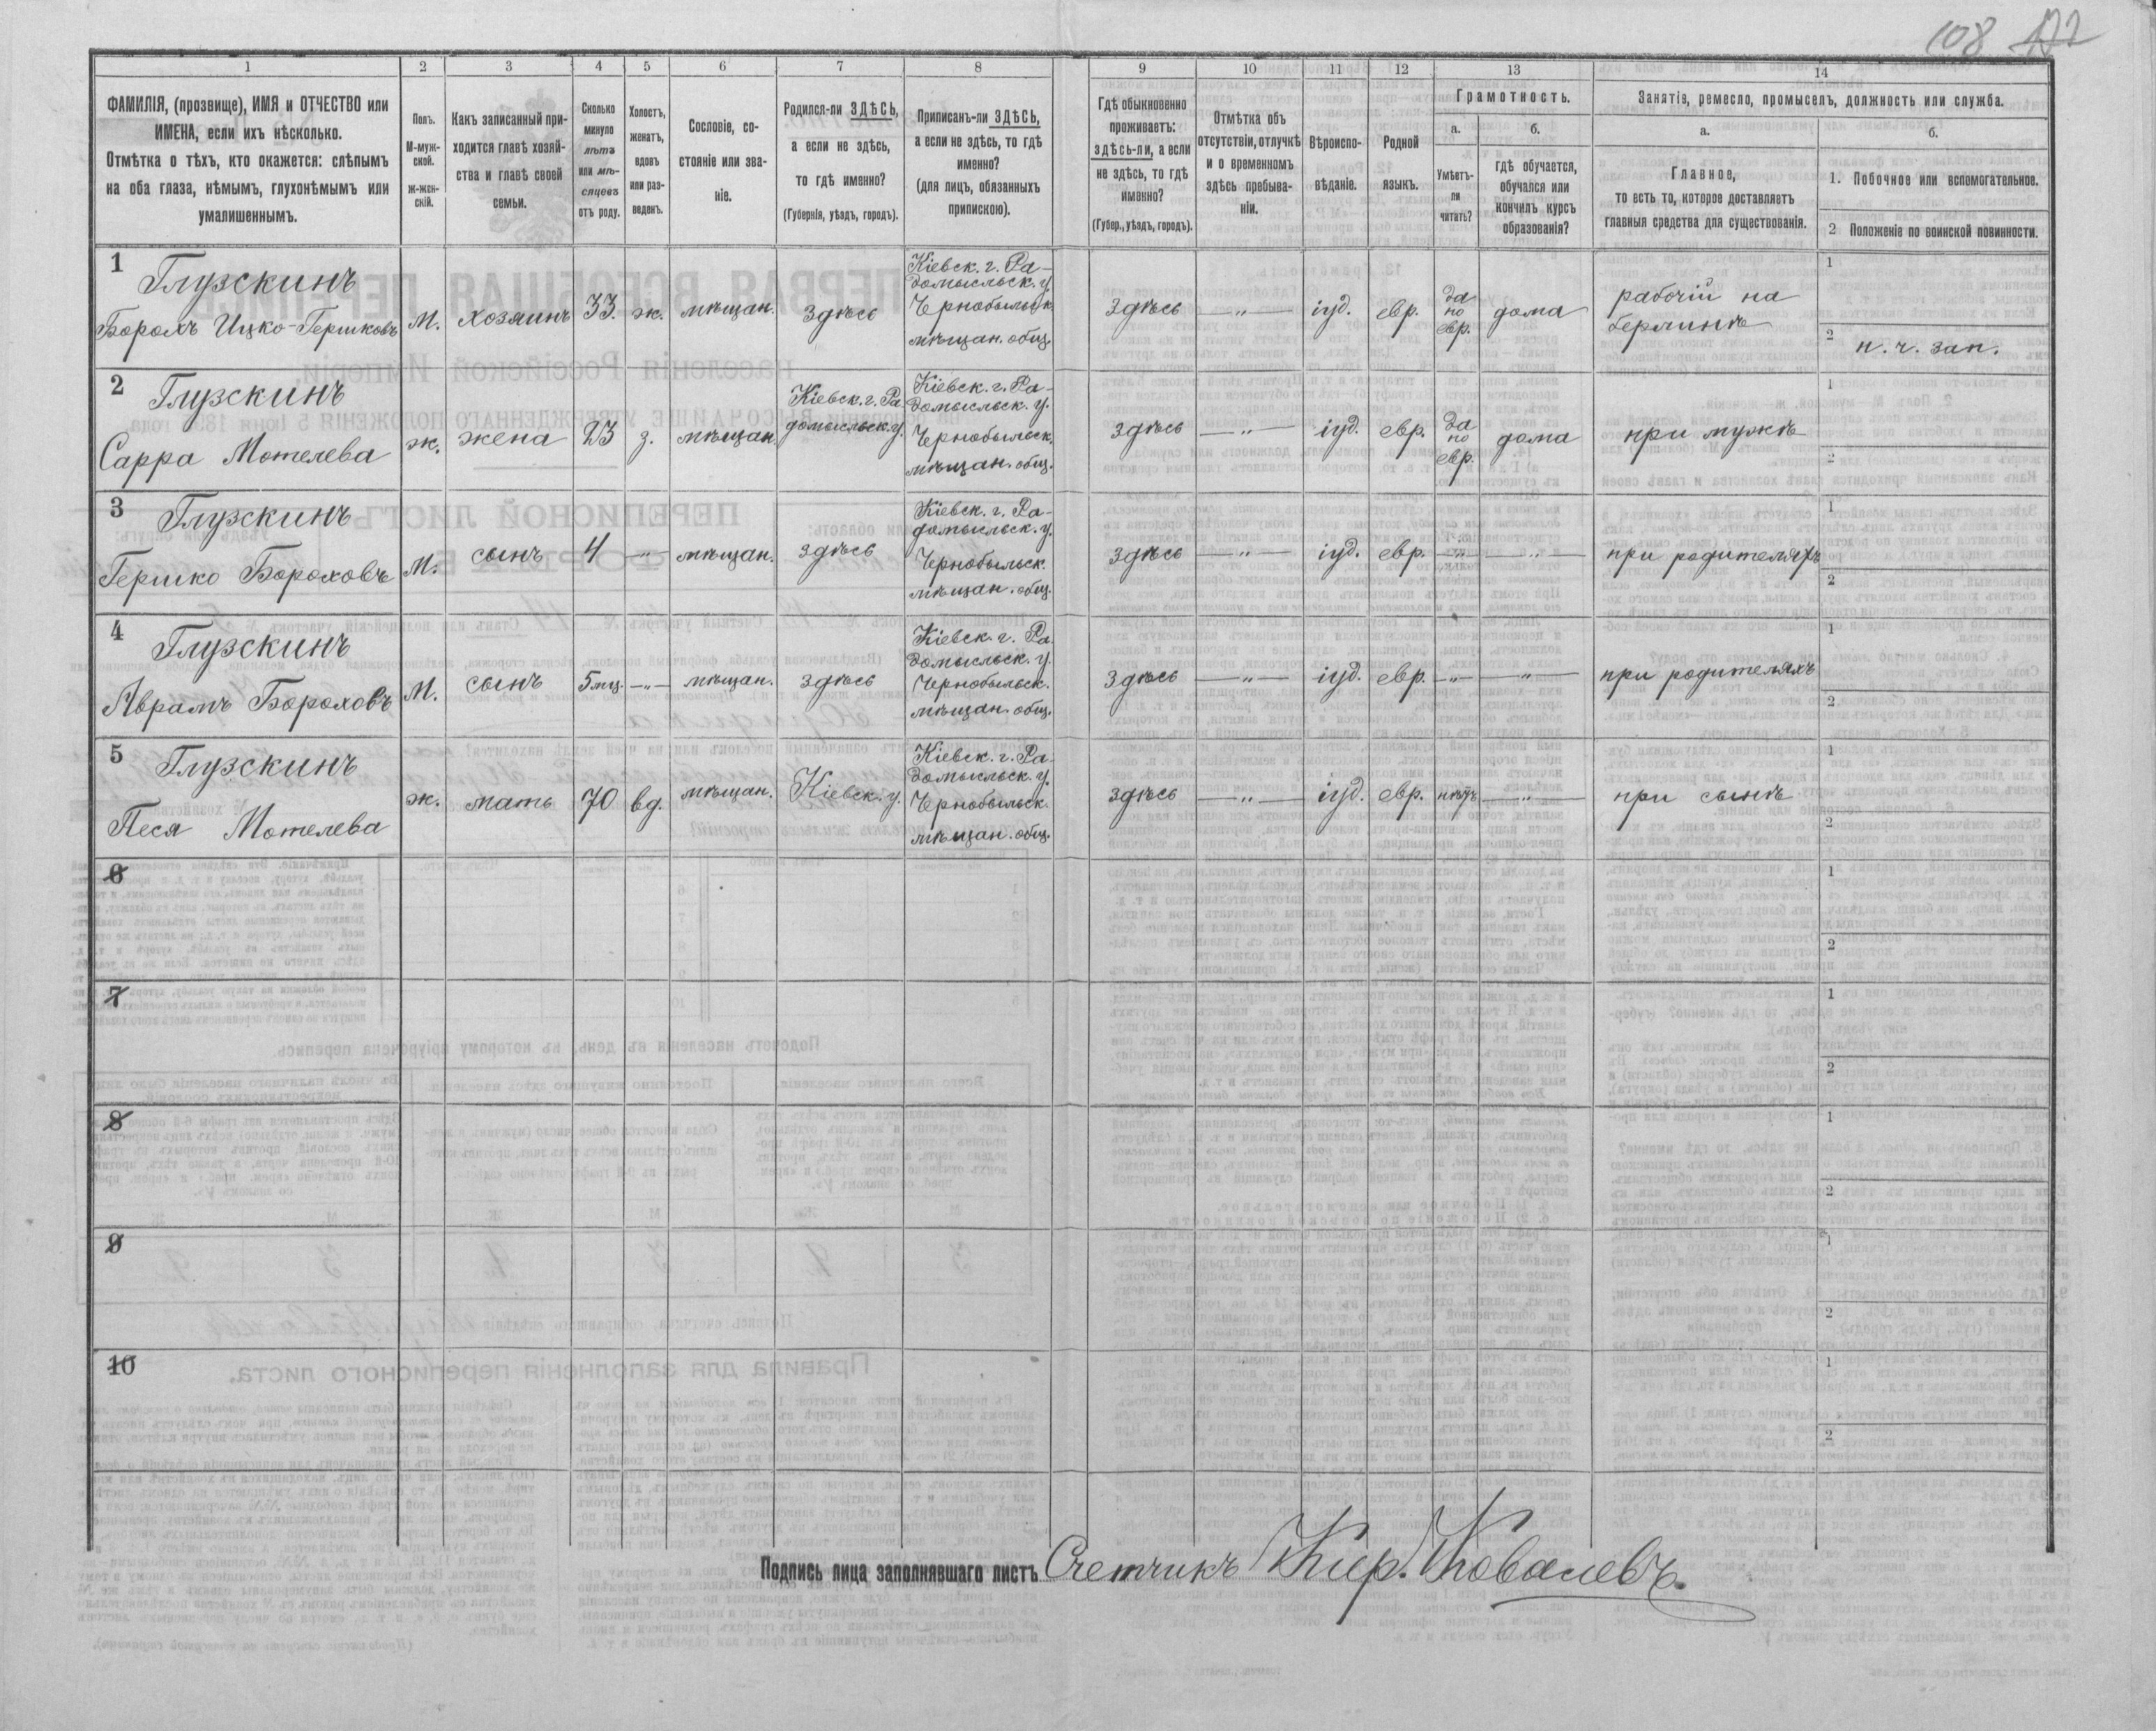 108 122
1
2
3
4
5
6
7
8
9
10
11
12
13
14
ФАМИЛІЯ, (прозвище), ИМЯ и ОТЧЕСТВО или
ИМЕНА, если ихъ нѣсколько.
Отмѣтка о тѣхъ, кто окажется: слѣпымъ
на оба глаза, нѣмымъ, глухонѣмымъ или
умалишеннымъ.
Полъ.
М-муж-
ской.
Ж-жен-
скій.
Какъ записанный при-
ходится главѣ хозяй-
ства и главѣ своей
семьи.
Сколько
минуло
лѣтъ
или мѣ-
сяцевъ
отъ роду.
Холостъ,
женатъ,
вдовъ
или раз-
веденъ.
Сословіе, со-
стояніе или зва-
ніе.
Родился-ли ЗДѢСЬ,
а если не здѣсь,
то гдѣ именно?
(Губернія, уѣздъ, городъ).
Приписанъ-ли ЗДѢСЬ,
а если не здѣсь, то гдѣ
именно?
(для лицъ, обязанныхъ
припискою).
Гдѣ обыкновенно
проживаетъ:
здѣсь-ли, а если
не здѣсь, то гдѣ
именно?
(Губер., уѣздъ, городъ).
Отмѣтка объ
отсутствіи, отлучкѣ
и о временномъ
здѣсь пребыва-
ніи.
Вѣроиспо-
вѣданіе.
Родной
языкъ.
Грамотность.
а.
Умѣетъ-
ли
читать?
б.
гдѣ обучается,
обучался или
кончилъ курсъ
образованія?
Занятіе, ремесло, промыселъ, должность или служба.
а.
Главное,
то есть то, которое доставляетъ
главныя средства для существованія.
б.
1. Побочное или вспомогательное.
2 Положеніе по воинской повинности.
1
Глузскинъ
Борохъ Ицко-Гершковъ
м.
хозяинъ
33.
ж.
мѣщан.
здѣсь
Кіевск. г. Ра-
домысльск. у.
Чернобыльск.
мѣщан. общ.
здѣсь
—„—
іуд.
евр.
да
по
евр.
дома
рабочій на
берлинѣ
1
2
н. ч. зап.
2
Глузскинъ
Сарра Мотелева
ж.
жена
23
з.
мѣщан.
Кіевск. г. Ра-
домысльск. у.
Кіевск. г. Ра-
домысльск. у.
Чернобыльск.
мѣщан. общ.
здѣсь
—„—
іуд.
евр.
да
по
евр.
дома
при мужѣ
1
2
3
Глузскинъ
Гершко Бороховъ
м.
сынъ
4
—„—
мѣщан.
здѣсь
Кіевск. г. Ра-
домысльск. у.
Чернобыльск.
мѣщан. общ.
здѣсь
—„—
іуд.
евр.
—„—
—„—
при родителяхъ
1
2
4
Глузскинъ
Аврамъ Бороховъ
м.
сынъ
5 мц.
—„—
мѣщан.
здѣсь
Кіевск. г. Ра-
домысльск. у.
Чернобыльск.
мѣщан. общ.
здѣсь
—„—
іуд.
евр.
—„—
—„—
при родителяхъ
1
2
5
Глузскинъ
Песя Мотелева
ж.
мать
70
вд.
мѣщан.
Кіевск. у.
Кіевск. г. Ра-
домысльск. у.
Чернобыльск.
мѣщан. общ.
здѣсь
—„—
іуд.
евр.
нѣтъ
—„—
при сынѣ
1
2
6
1
2
7
1
2
8
1
2
9
1
2
10
1
2
Подпись лица заполнявшаго листъ Счетчикъ Кир. Ковалевъ.